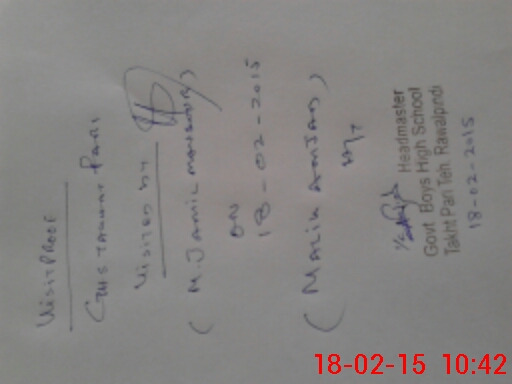 Visit PROOF
GHS TAKHAT PARI
Visited by
(M. JAMIL MANSOOR)
ON
18-02-2015
(MALIK AMJAD)
Headmaster
Govt Boys High School
Takht Pari Teh. Rawalpindi
18-02-2015
18-02-15 10:42